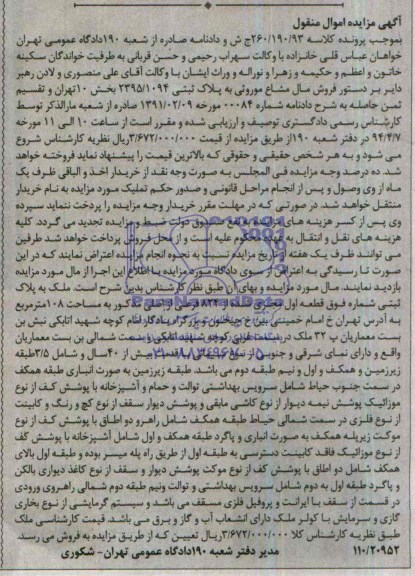 آگهی مزایده اموال منقول
بموجب پرونده کلاسه ۲۶۰/۱۹۰/۹۳ج ش و دادنامه صادره از شعبه ۱۹۰دادگاه عمومی تهران
خواهان عباس قلی خانزاده با وکالت سهراب رحیمی و حسن قربانی به طرفیت خواندگان سکینه
خاتون و اعظم و حکیمه و زهرا و نوراله و وراث ایشان با وکالت آقای علی منصوری و لادن رهبر
دایر بر دستور فروش مال مشاع موروثی به پلاک ثبتی ۲۳۹۵/۱۰۹۴ بخش ۱۰تهران و تقسیم
ثمن حاصله به شرح دادنامه شماره ۰۰۰۸۴ مورخه ۱۳۹۱/۰۲/۰۹ صادره از شعبه مارالذکر توسط
کارشناس رسمی دادگستری توصیف و ارزیابی شده و مقرر است از ساعت ۱۰ الی ۱۱ مورخه
۹۴/۴/۷ در دفتر شعبه ۱۹۰از طریق مزایده از قیمت ۳/۶۷۲/۰۰۰/۰۰۰ریال نظریه کارشناس شروع
می شود و به هر شخص حقیقی و حقوقی که بالاترین قیمت را پیشنهاد نماید فروخته خواهد
شد. ده درصد وجه مزایده فی المجلس به صورت وجه نقد از خریدار اخذ و الباقی ظرف یک
ماه از وی وصول و پس از انجام مراحل قانونی و صدور حکم تملیک مورد مزایده به نام خریدار
منتقل خواهد شد. در صورتی که در مهلت مقرر خریدار وجه مزایده را پرداخت ننماید سپرده
وی پس از کسر هزینه های مزایده به نفع صندوق دولت ضبط و مزایده تجدید می گردد. کلیه
هزینه های نقل و انتقال به عهده محکوم علیه است و از محل فروش پرداخت خواهد شد طرفین
می توانند ظرف یک هفته از تاریخ مزایده نسبت به نحوه انجام مزایده اعتراض نمایند که در این
صورت تا رسیدگی به اعتراض از سوی دادگاه مورد مزایده با اطلاع این اجرا از مال مورد مزایده
بازدید نمایند. مال مورد مزایده و بهای آن طبق نظر کارشناس بدین شرح است. ملک به پلاک
ثبتی شماره فوق قطعه اول تفکیکی به مساحت ۱۰۸مترمربع
به آدرس تهران خ امام خمینی بین خ جیحون و بزرگراه یادگار امام کوچه شهید اتابکی نبش بن
بست معماریان پ ۳۲ ملک در سمت غربی کوچه شهید اتابکی و سمت شمالی بن بست معماریان
واقع و دارای نمای شرقی و جنوبی از نوع قدمت بیش از ۴۰سال و شامل ۳/۵طبقه
زیرزمین و همکف و اول و نیم طبقه دوم می باشد. طبقه زیرزمین به صورت انباری طبقه همکف
در سمت جنوب حیاط شامل سرویس بهداشتی توالت و حمام و آشپزخانه با پوشش کف از نوع
موزائیک پوشش نیمه دیوار از نوع کاشی مابقی و پوشش دیوار سقف از نوع گچ و رنگ و کابینت
از نوع فلزی در سمت شمالی حیاط طبقه همکف شامل راهرو دو اطاق با پوشش کف از نوع
موکت زیرپله همکف به صورت انباری و پاگرد طبقه همکف و اول شامل آشپزخانه با پوشش کف
از نوع موزائیک فاقد کابینت دسترسی به طبقه اول از طریق راه پله میسر بوده و طبقه اول بالای
همکف شامل دو اطاق با پوشش کف از نوع موکت پوشش دیوار و سقف از نوع کاغذ دیواری بالکن
و پاگرد طبقه اول به دوم شامل سرویس بهداشتی و توالت ونیم طبقه دوم شمالی راهروی ورودی
در قسمت از سقف با ایرانت و پروفیل فلزی مسقف می باشد و سیستم گرمایشی از نوع بخاری
گازی و سرمایش با کولر ملک دارای انشعاب آب و گاز و برق می باشد. قیمت کارشناسی ملک
طبق نظریه کارشناس کلا ۳/۶۷۲/۰۰۰/۰۰۰ریال تعیین که از طریق مزایده به فروش می رسد.
۱۱۰/۲۰۹۵۲ مدیر دفتر شعبه ۱۹۰دادگاه عمومی تهران- شکوری